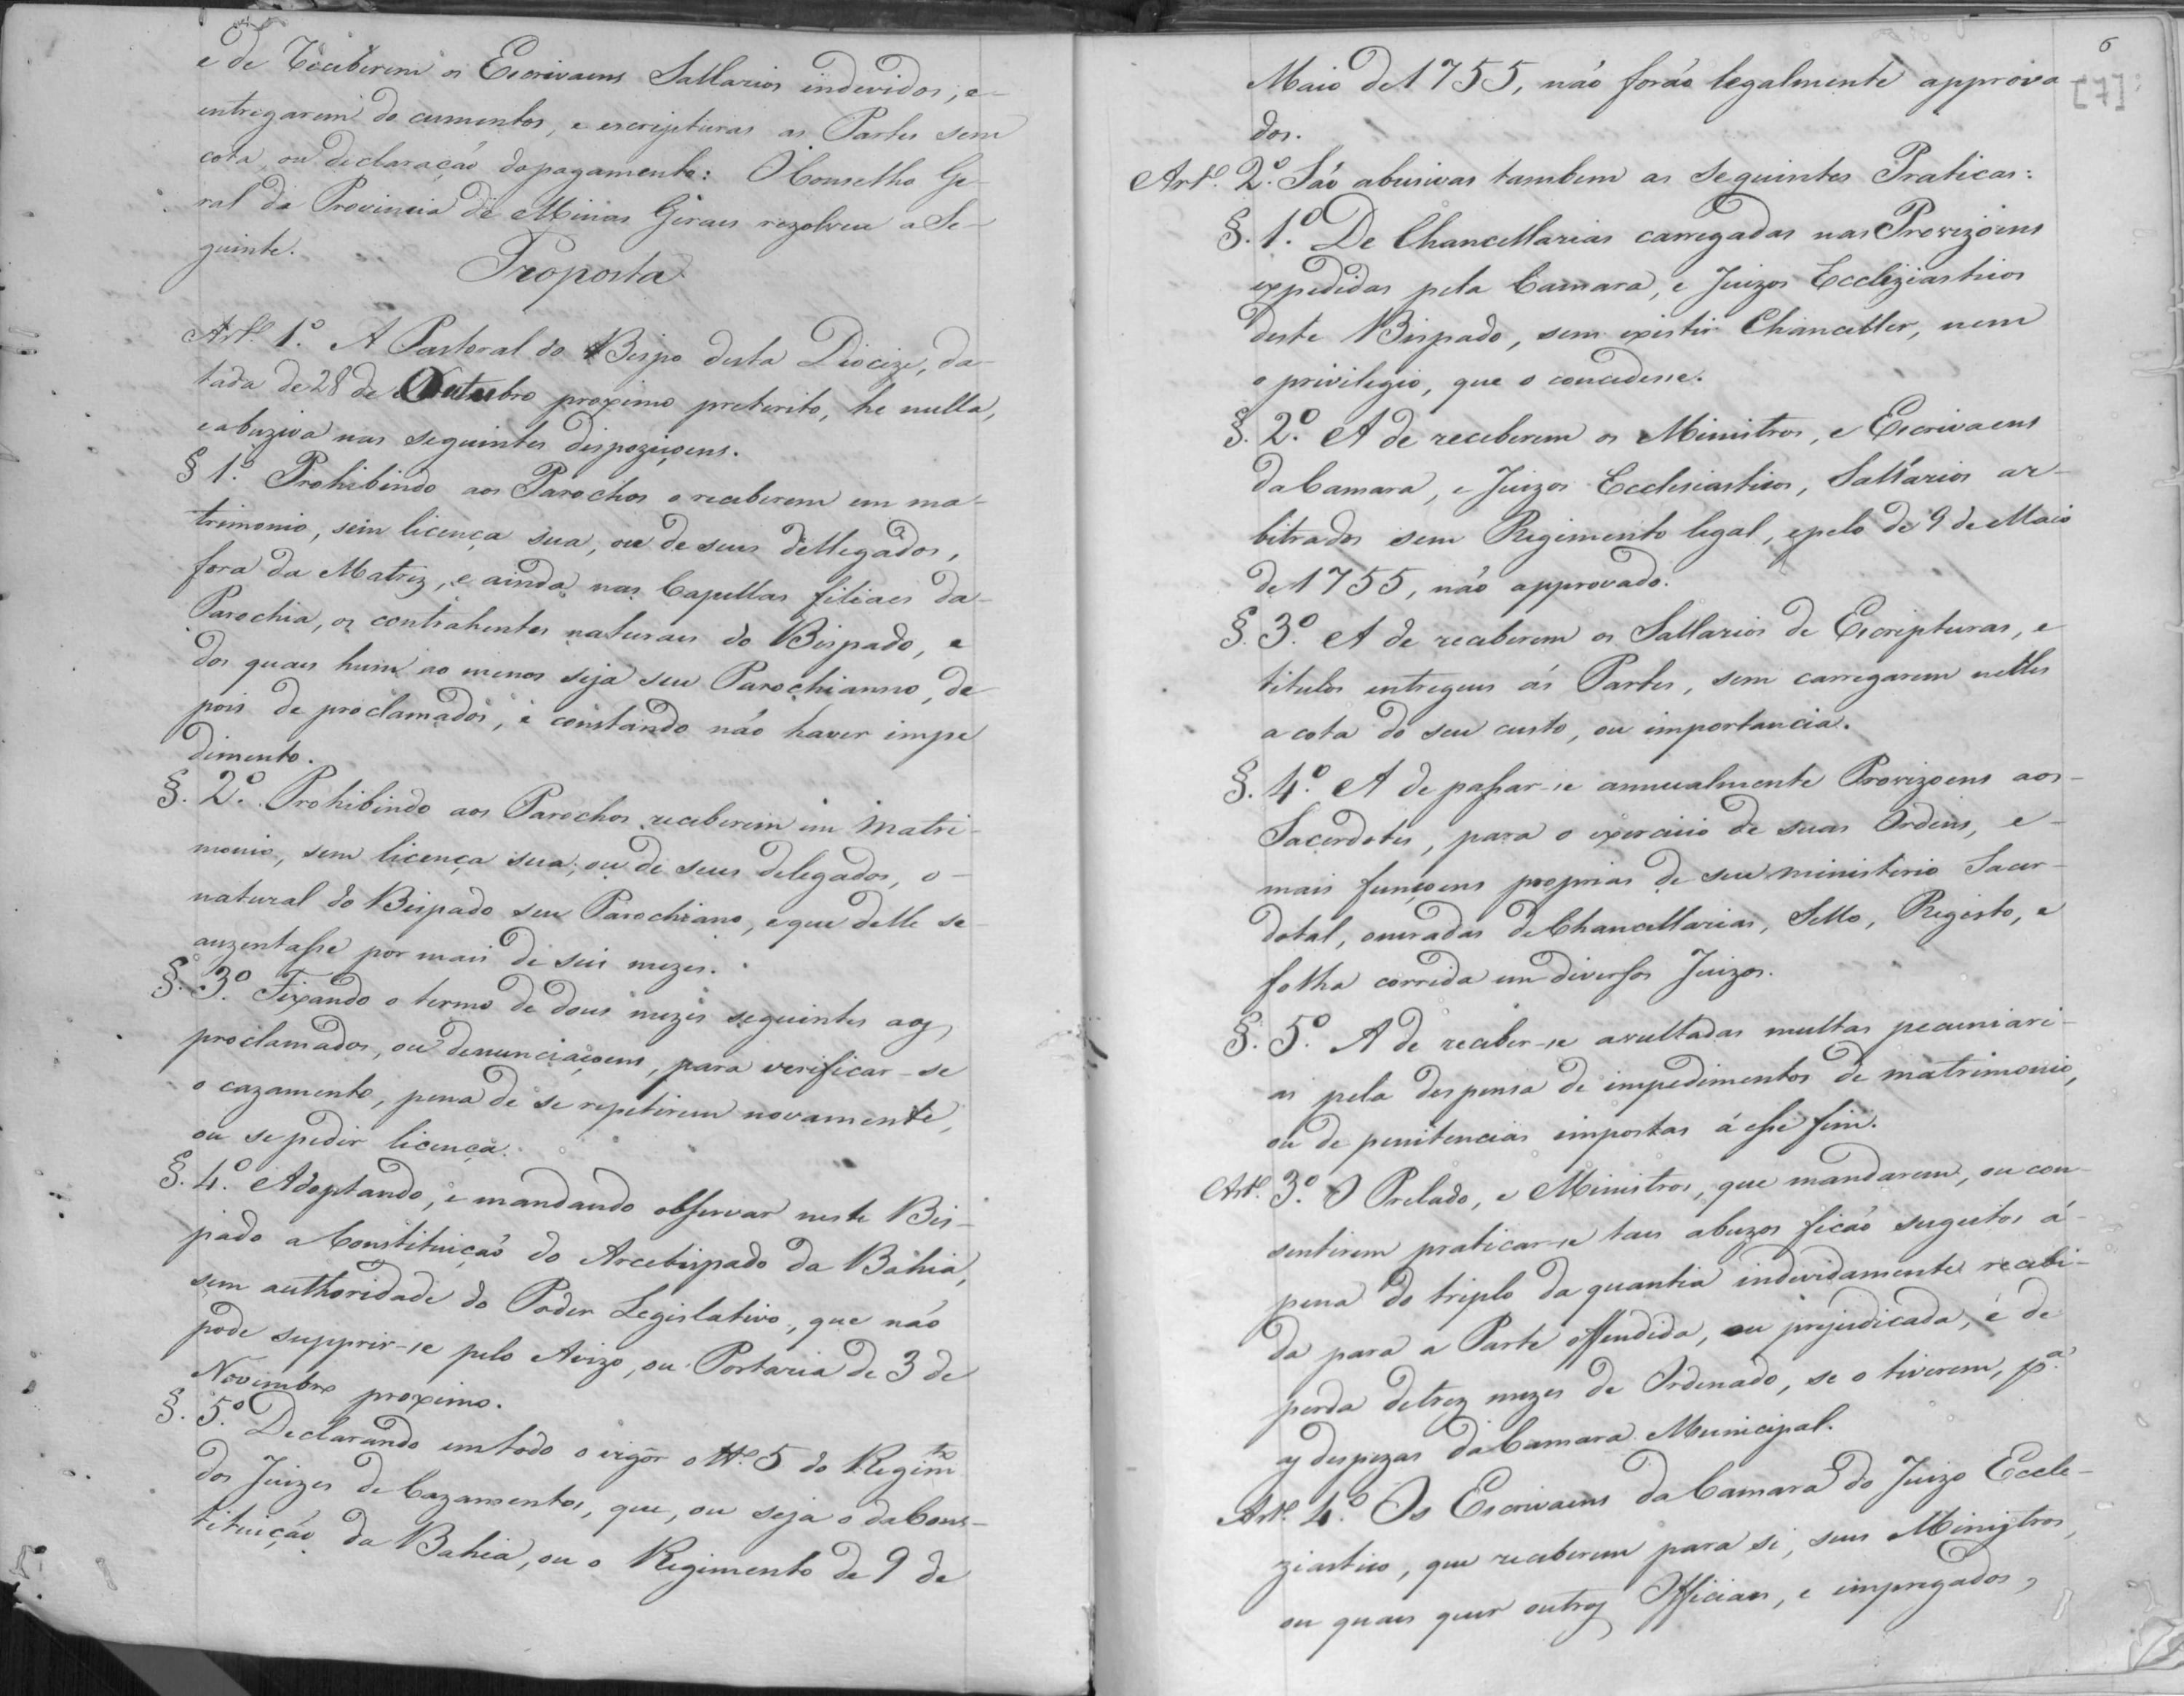 e de receberem os Escrivaens Sallarios indevidos, e
entregarem documentos, e escripturas as Partes sem
cota, ou declaração do pagamento: O Conselho Ge-
ral da Provincia de Minas Geraes rezolveu a Se-
guinte.
Proposta
Artº. 1º. A Pastoral do Bispo desta Diocize, da-
tada de 28 de Outubro proximo preterito, he nulla,
e abuziva nas seguintes dispoziçoens.
§ 1º. Prohibindo aos Parochos o receberem em ma-
trimonio, sem licença sua, ou de seus dellegados,
fora da Matriz, e ainda nas Capellas filiaes da
Parochia, os contrahentes naturaes do Bispado, e
dos quaes hum ao menos seja seu Parochianno, de
pois de proclamados, e constando não haver impe
dimento.
§. 2º. Prohibindo aos Parochos receberem em Matri-
monio, sem licença sua, ou de seus delegados, o
natural do Bispado seu Parochiano, e que delle se
auzentasse por mais de seis mezes.
§. 3º. Fixando o termo de dous mezes seguintes aos
proclamados, ou denunciaçoens, para verificar-se
o cazamento, pena de se repetirem novamente,
ou se pedir licença.
§. 4º. Adoptando, e mandando observar neste Bis-
pado a Constituição do Arcebispado da Bahia,
sem authoridade do Poder Legislativo, que não
pode supprir-se pelo Avizo, ou Portaria de 3 de
Novembro proximo.
§. 5º. Declarando em todo o vigor o tt.º 5 do Regimto
dos Juizes de Cazamentos, que, ou seja o da Cons-
tituição da Bahia, ou o Regimento de 9 de
6
[7]
Maio de 1755, não forão legalmente approva
dos.
Artº. 2º. São abusivas tambem as seguintes Praticas:
§. 1º. De Chancellarias carregadas nas Provizoens
expedidas pela Camara, e Juizos Eccleziasticos
deste Bispado, sem existir Chanceller, nem
o privilegio, que o concedesse.
§. 2º. A de receberem os Ministros, e Escrivaens
da Camara, e Juizos Ecclesiasticos, Sallarios ar-
bitrados sem Regimento legal, e pelo de 9 de Maio
de 1755, não approvado.
§. 3º. A de receberem os Sallarios de Escripturas, e
titulos entregues ás Partes, sem carregarem nelles
a cota do seu custo, ou importancia.
§. 4º. A de passar-se annualmente Provizoens aos
Sacerdotes, para o exercicio de suas Ordens, e
mais funçoens proprias de seu ministerio Sacer-
dotal, oneradas de Chancellarias, Sello, Registo, e
folha corrida em diversos Juizos.
§. 5º. A de receber-se avultadas multas pecuniari-
as pela despensa de impedimentos de matrimonio,
ou de penitencias impostas á esse fim.
Artº. 3º. O Prelado, e Ministros, que mandarem, ou con-
sentirem praticar-se taes abuzos ficão sugeitos á
pena do triplo da quantia indevidamente recebi-
da para a Parte offendida, ou prejudicada, e de
perda de trez mezes de Ordenado, se o tiverem, pª.
as despezas da Camara Municipal.
Artº. 4º. Os Escrivaens da Camara do Juizo Eccle-
ziastico, que receberem para si, seus Ministros,
ou quaes quer outros Officiaes, e impregados,